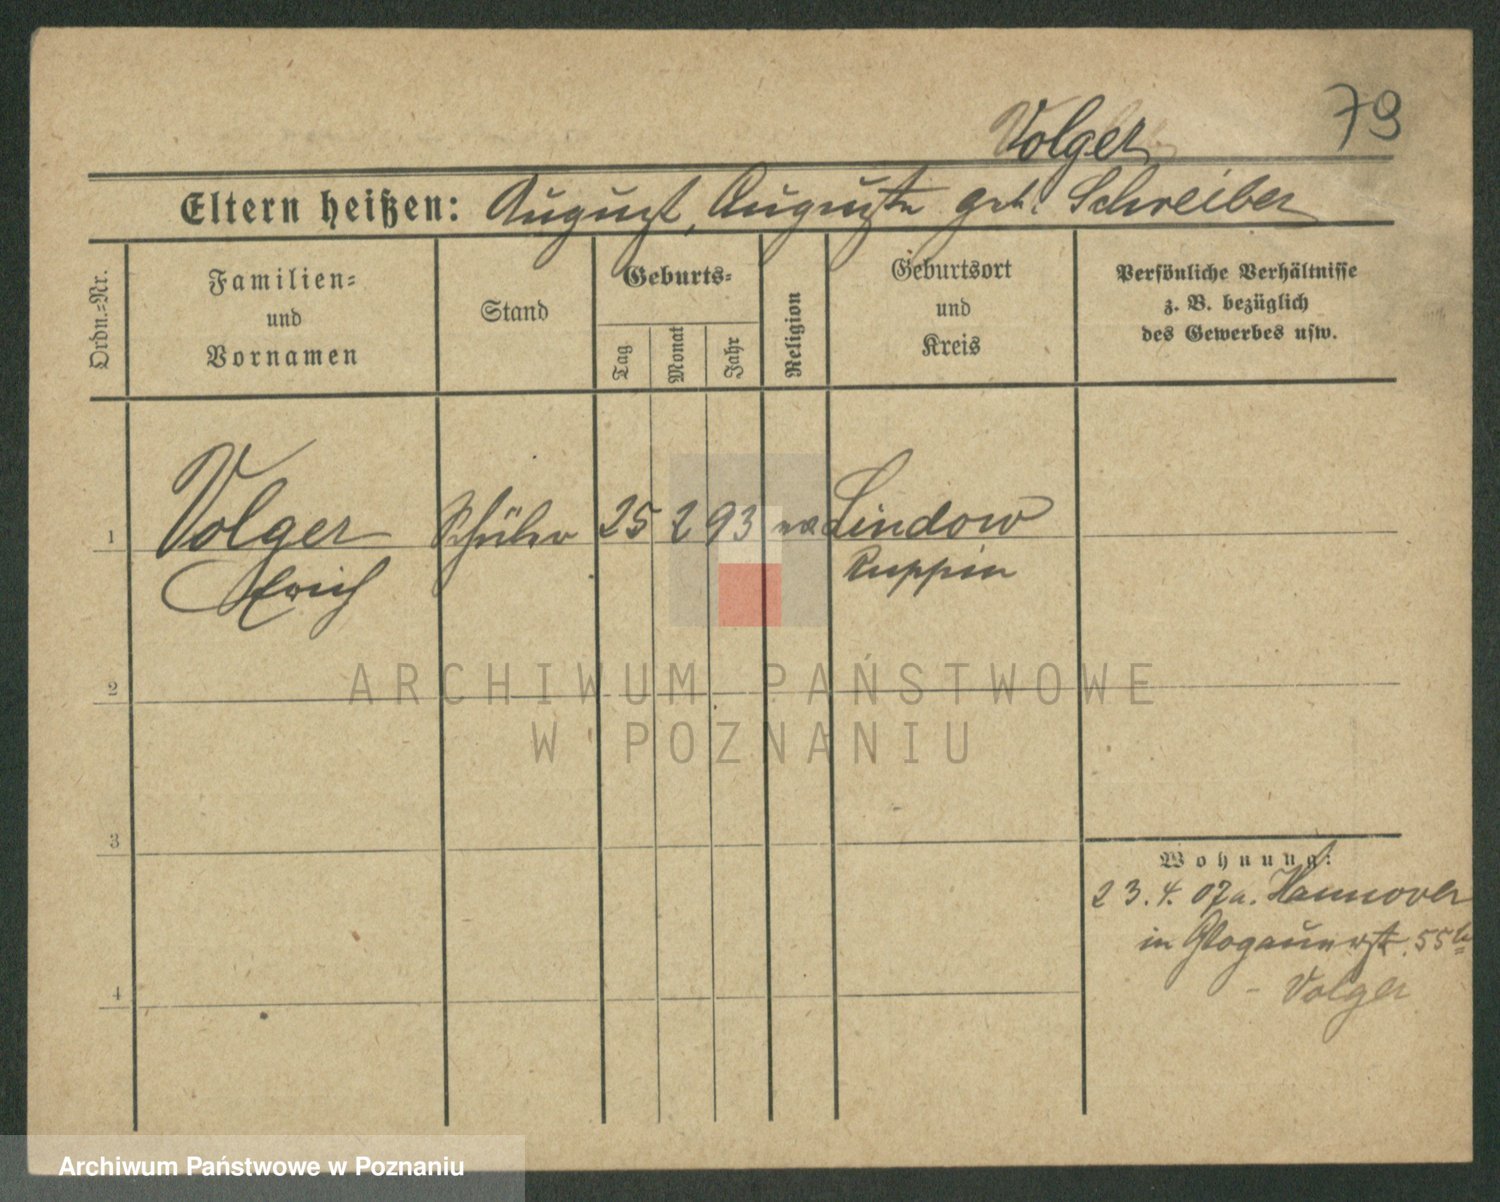 79
Volger
Eltern heißen: August, Auguste geb. Schreiber
Ordn.-Nr.
Familien-
und
Vornamen
Stand
Geburts-
Tag
Monat
Jahr
Religion
Geburtsort
und
Kreis
Persönliche Verhältnisse
z. B. bezüglich
des Gewerbes usw.
1 Volger Schüler 25 2 93 Lindow
Erich Ruppin
2
3
4
Wohnung:
23.4.07 a. Hannover
in Glogauerstr. 55
- Volger
ARCHIWUM PAŃSTWOWE
W POZNANIU
Archiwum Państwowe w Poznaniu